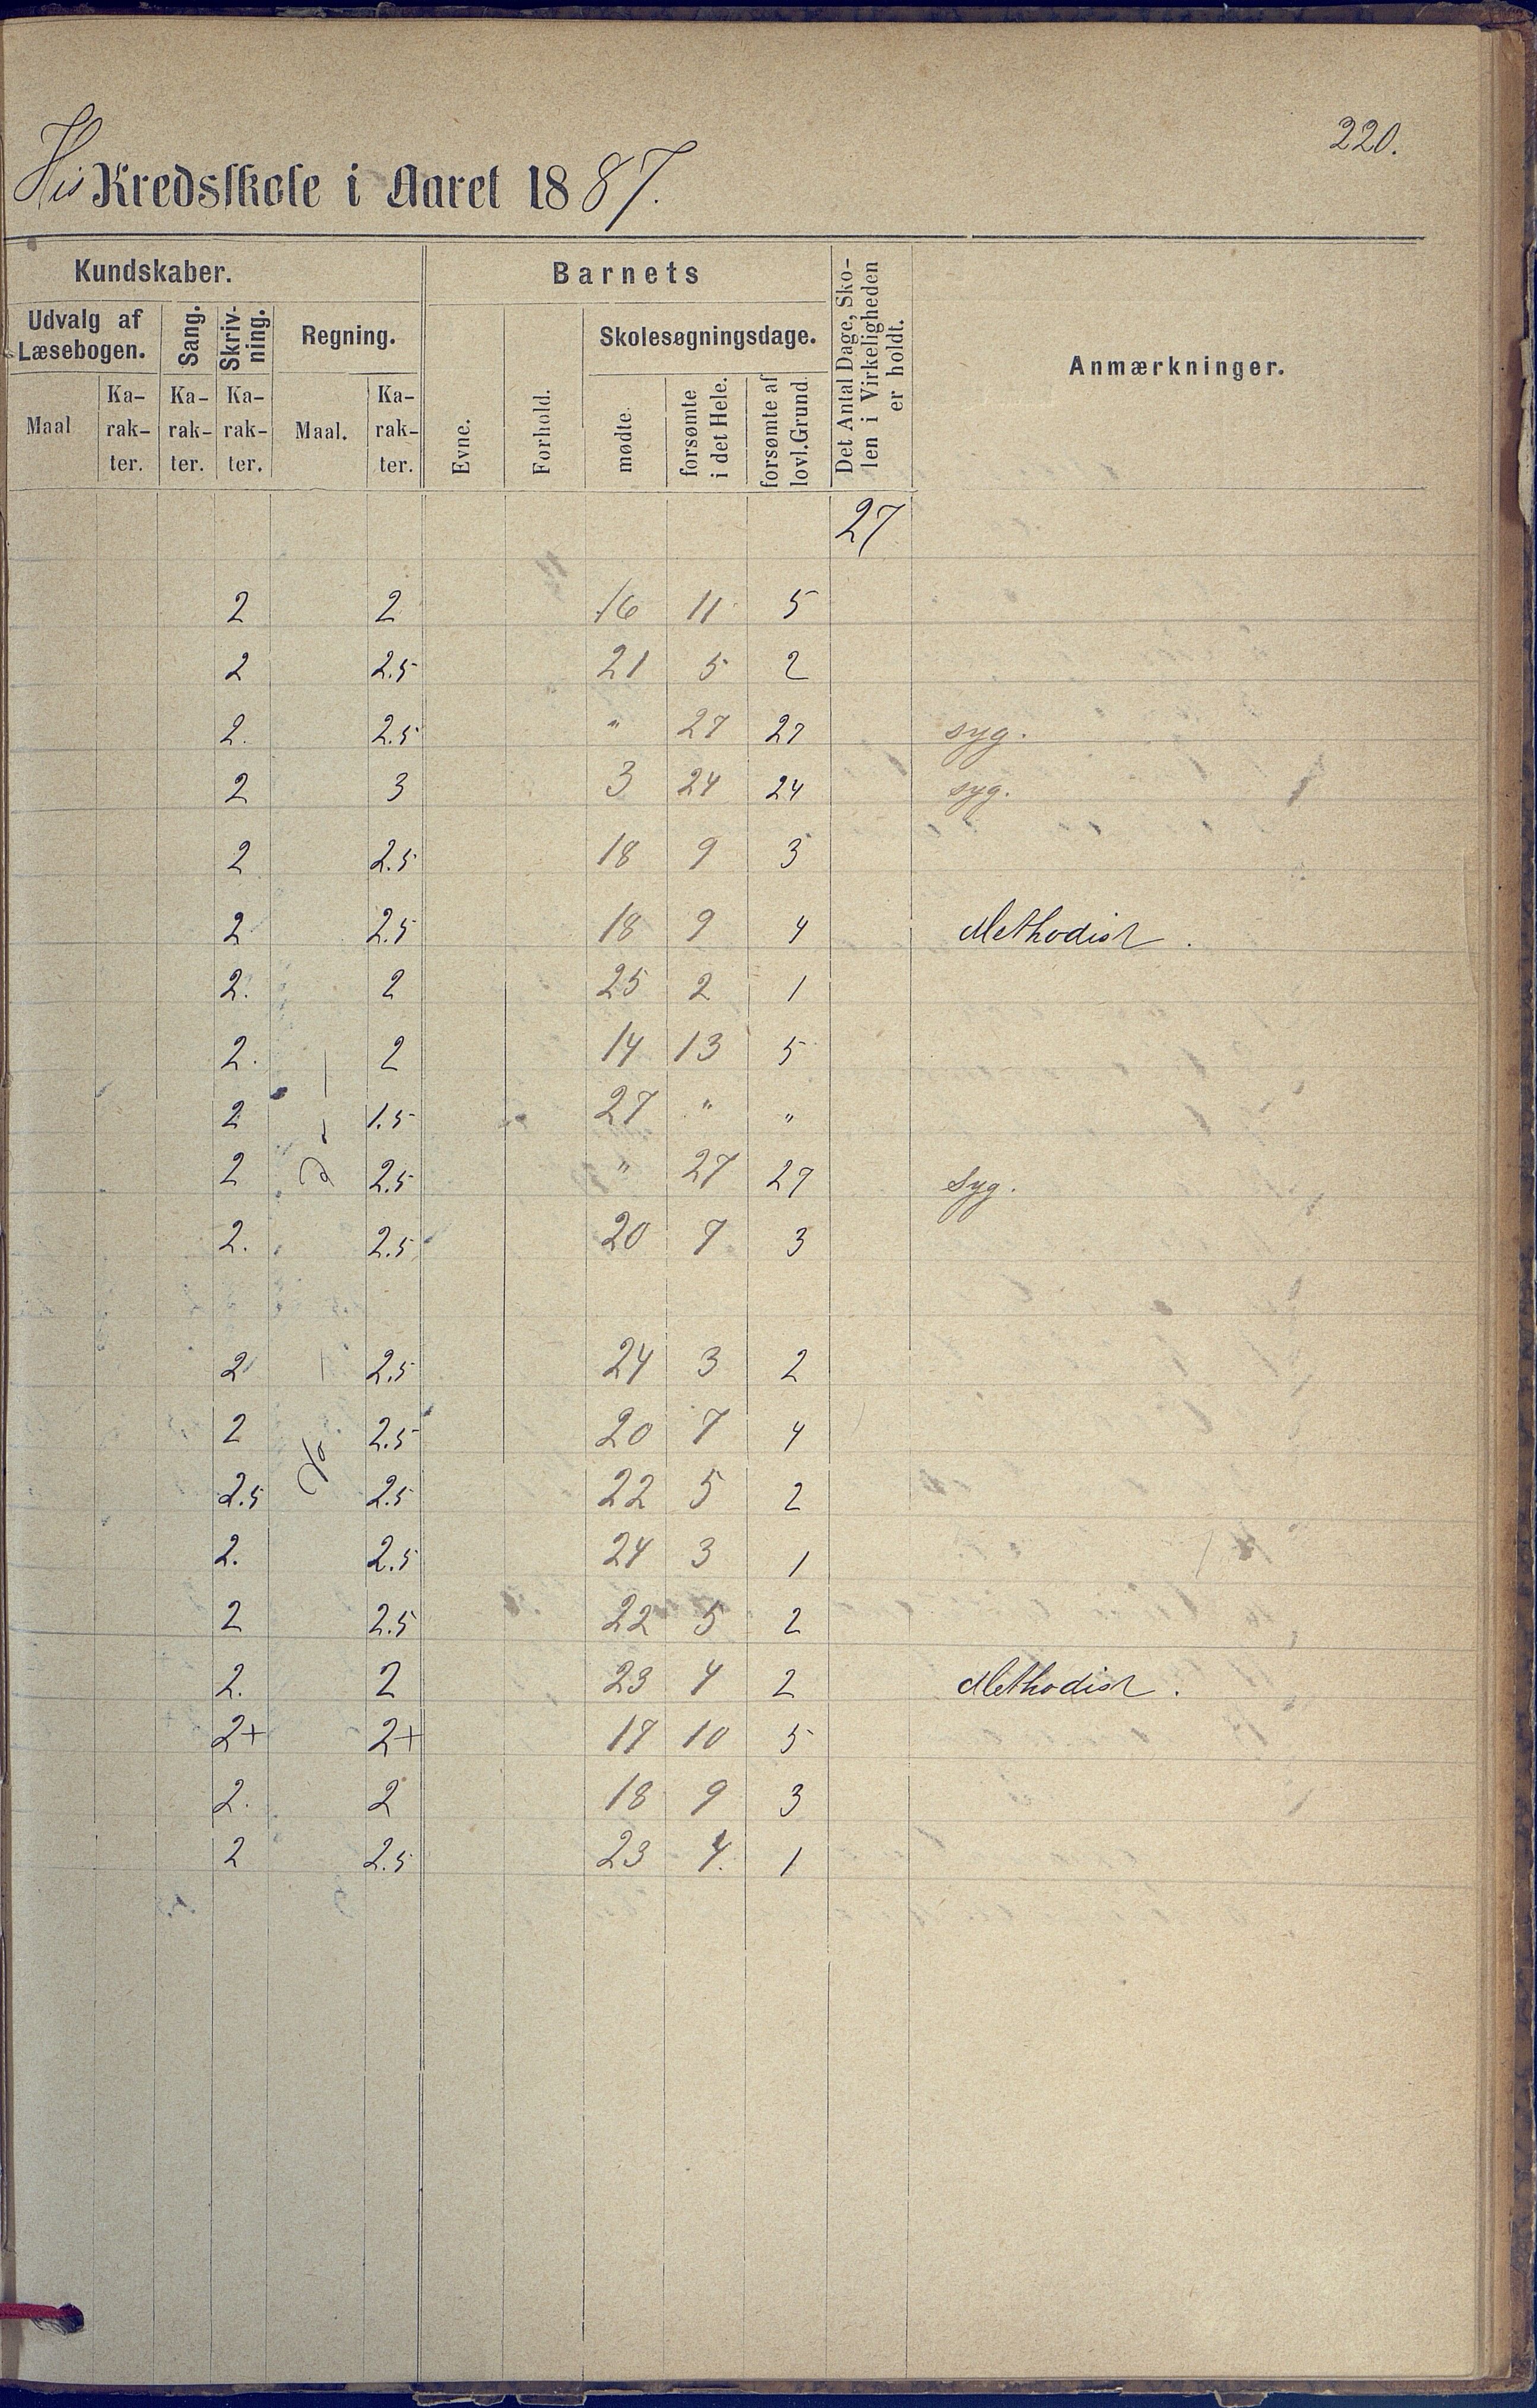 220.
His Kredsskole i Aaret 1887.
Kundskaber. Barnets Det Antal Dage, Sko-
len i Virkeligheden
er holdt. Anmærkninger.
Udvalg af
Læsebogen. Sang. Skriv-
ning. Regning. Evne. Forhold. Skolesøgningsdage.
Maal Ka-
rak-
ter. Ka-
rak-
ter. Ka-
rak-
ter. Maal. Ka-
rak-
ter. mødte. forsømte
i det Hele. forsømte af
lovl. Grund.
27
2 2 16 11 5
2 2.5 21 5 2
2. 2.5 " 27 27 syg.
2 3 3 24 24 syg.
2 2.5 18 9 3
2 2.5 18 9 4 Methodist.
2. 2 25 2 1
2. 2 14 13 5
2 1.5 27 " "
2 2.5 " 27 27 Syg.
2. 2.5 20 7 3
2 2.5 24 3 2
2 2.5 20 7 4
2.5 2.5 22 5 2
2. 2.5 24 3 1
2 2.5 22 5 2
2. 2 23 4 2 Methodist.
2+ 2+ 17 10 5
2. 2 18 9 3
2 2.5 23 4. 1